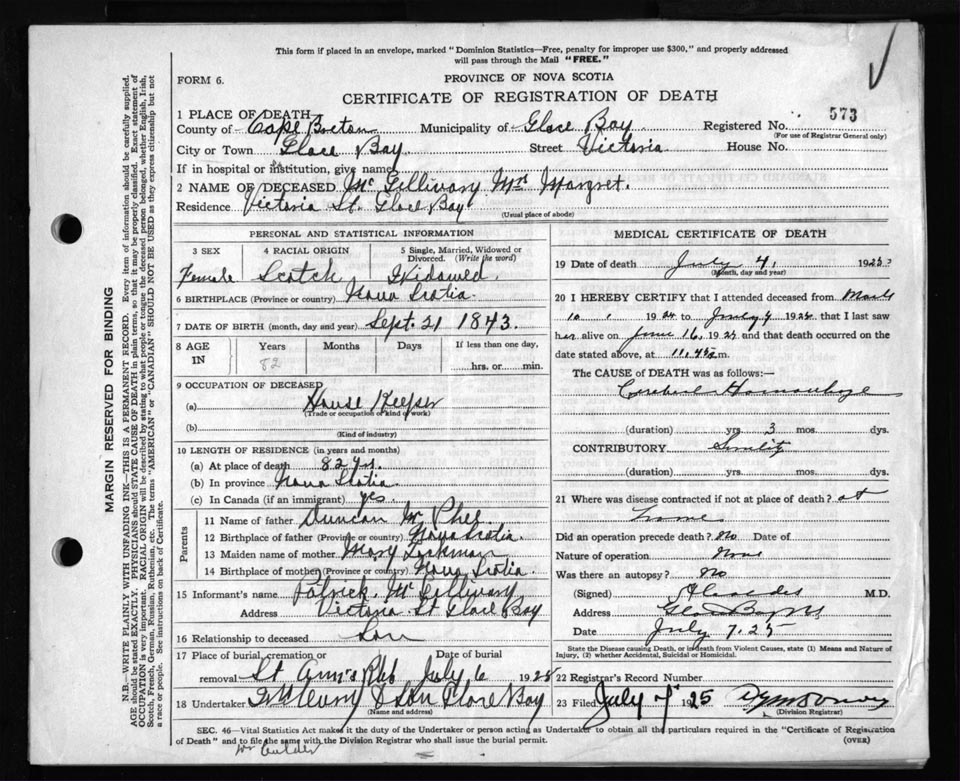 This form if placed in an envelope, marked "Dominion Statistics—Free, penalty for improper use $300," and properly addressed
will pass through the Mail "FREE."
FORM 6.
PROVINCE OF NOVA SCOTIA
CERTIFICATE OF REGISTRATION OF DEATH
573
1 PLACE OF DEATH
County of Cape Breton Municipality of Glace Bay Registered No.
(For use of Registrar General only)
City or Town Glace Bay Street Victoria House No.
If in hospital or institution, give name
2 NAME OF DECEASED Mc Gillivary Mrs Margret.
Residence Victoria St. Glace Bay
(Usual place of abode)
PERSONAL AND STATISTICAL INFORMATION
3 SEX 4 RACIAL ORIGIN 5 Single, Married, Widowed or
Divorced. (Write the word)
Female Scotch Widowed
6 BIRTHPLACE (Province or country) Nova Scotia
7 DATE OF BIRTH (month, day and year) Sept. 21 1843.
8 AGE IN Years Months Days If less than one day,
82 hrs. or min.
9 OCCUPATION OF DECEASED
(a) House Keeper
(Trade or occupation or kind of work)
(b)
(Kind of industry)
10 LENGTH OF RESIDENCE (in years and months)
(a) At place of death 82 yrs.
(b) In province Nova Scotia
(c) In Canada (if an immigrant) yes.
Parents
11 Name of father Duncan Mc Phee
12 Birthplace of father (Province or country) Nova Scotia.
13 Maiden name of mother Mary
14 Birthplace of mother (Province or country) Nova Scotia.
15 Informant's name Patrick Mc Gillivary
Address Victoria St Glace Bay
16 Relationship to deceased Son
17 Place of burial, cremation or Date of burial
removal St Ann's July 6 1925
18 Undertaker & Son Glace Bay
(Name and address)
MEDICAL CERTIFICATE OF DEATH
19 Date of death July 4, 1925
(Month, day and year)
20 I HEREBY CERTIFY that I attended deceased from March
10 19 to July 4 19 that I last saw
her alive on June 16, 19 and that death occurred on the
date stated above, at 11.45 m.
The CAUSE OF DEATH was as follows:—
Cerebral Hemorrhage
(duration) yrs. 3 mos. dys.
CONTRIBUTORY Senility
(duration) yrs. mos. dys.
21 Where was disease contracted if not at place of death? at
home
Did an operation precede death? No Date of
Nature of operation None
Was there an autopsy? No
(Signed) M.D.
Address Glace Bay NS
Date July 7. 25
State the Disease causing Death, or in death from Violent Causes, state (1) Means and Nature of
Injury, (2) whether Accidental, Suicidal or Homicidal.
22 Registrar's Record Number
23 Filed July 7 1925
(Division Registrar)
SEC. 46—Vital Statistics Act makes it the duty of the Undertaker or person acting as Undertaker to obtain all the particulars required in the "Certificate of Registration
of Death" and to file the same with the Division Registrar who shall issue the burial permit.
(OVER)
MARGIN RESERVED FOR BINDING
N.B.—WRITE PLAINLY WITH UNFADING INK—THIS IS A PERMANENT RECORD. Every item of information should be carefully supplied.
AGE should be stated EXACTLY. PHYSICIANS should STATE CAUSE OF DEATH in plain terms, so that it may be properly classified. Exact statement of
OCCUPATION is very important. RACIAL ORIGIN will be described by stating to what people or tongue the deceased person belonged, whether English, Irish,
Scotch, French, German, Russian, Ruthenian, etc. The terms "AMERICAN" or "CANADIAN" SHOULD NOT BE USED as they express citizenship but not
a race or people. See instructions on back of Certificate.